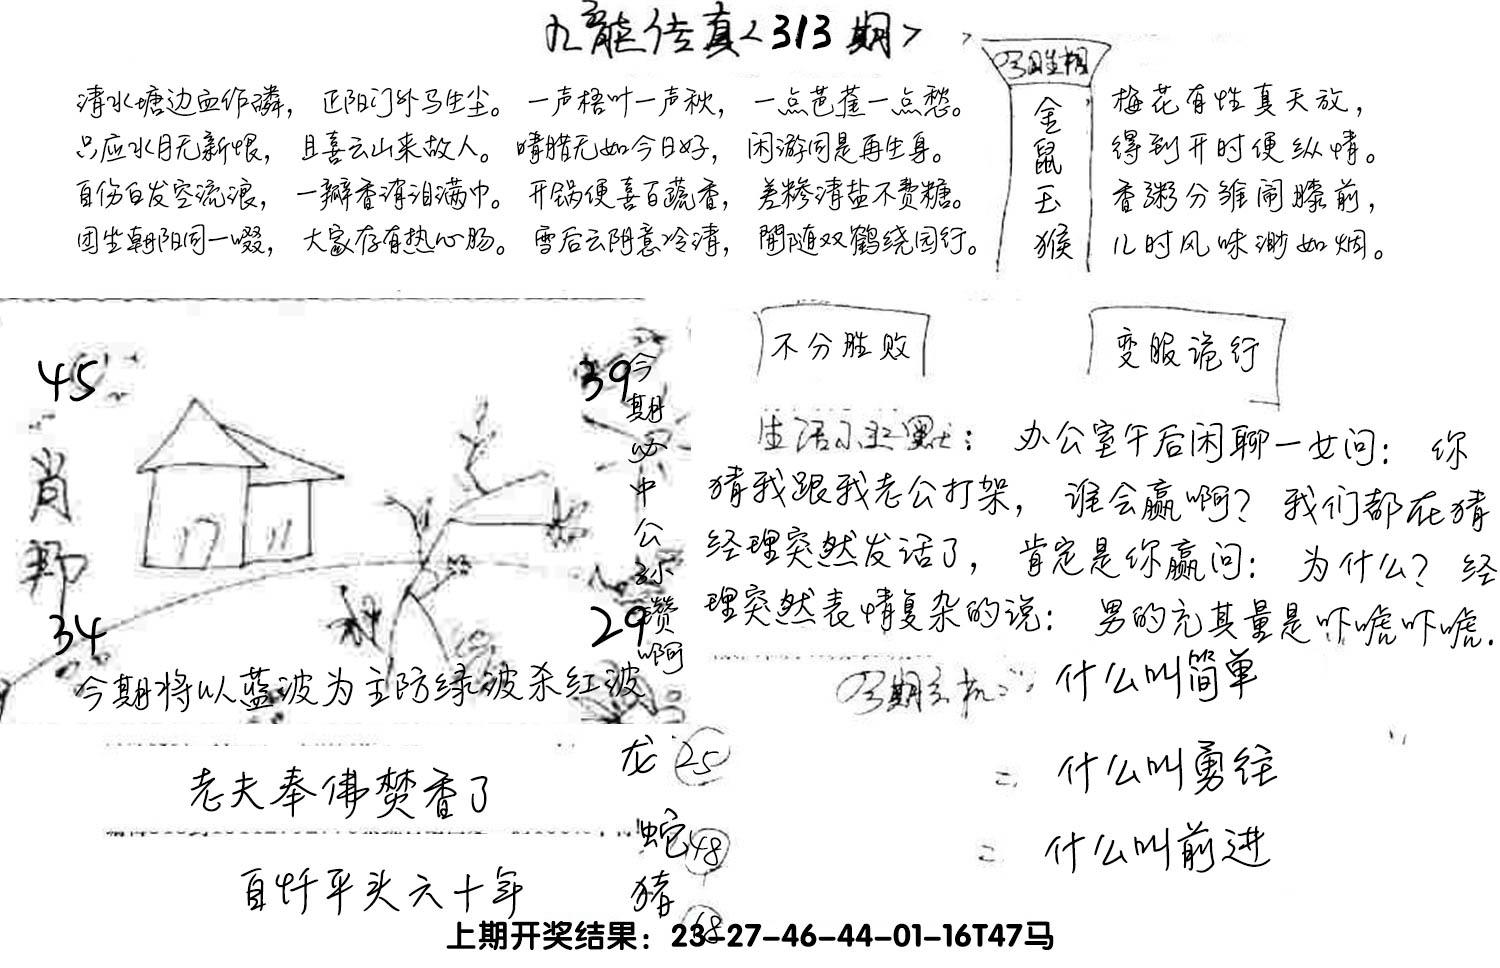 九龍传真<313期>
清水塘边血作磷，正阳门外马生尘。一声梧叶一声秋，一点芭蕉一点愁。
只应水月无新恨，且喜云山来故人。晴腊无如今日好，闲游同是再生身。
自伤白发空流浪，一瓣香消泪满巾。开锅便喜百蔬香，差糁清盐不费糖。
团坐朝阳同一啜，大家存有热心肠。雪后云阴意冷清，閒随双鹤绕园行。
金鼠玉猴
梅花有性真天放，
得到开时便纵情。
香粥分雏闹膝前，
儿时风味渺如烟。
45
39
肖
34
29
今期必中公称赞啊
今期将以蓝波为主防绿波杀红波
不分胜败
变服诡行
生活小幽默：办公室午后闲聊一女问：你
猜我跟我老公打架，谁会赢啊？我们都在猜
经理突然发话了，肯定是你赢问：为什么？经
理突然表情复杂的说：男的充其量是吓唬吓唬.
今期玄机：什么叫简单
什么叫勇往
什么叫前进
老夫奉佛焚香了
自忏平头六十年
龙 25
蛇 48
猪
上期开奖结果：23-27-46-44-01-16T47马